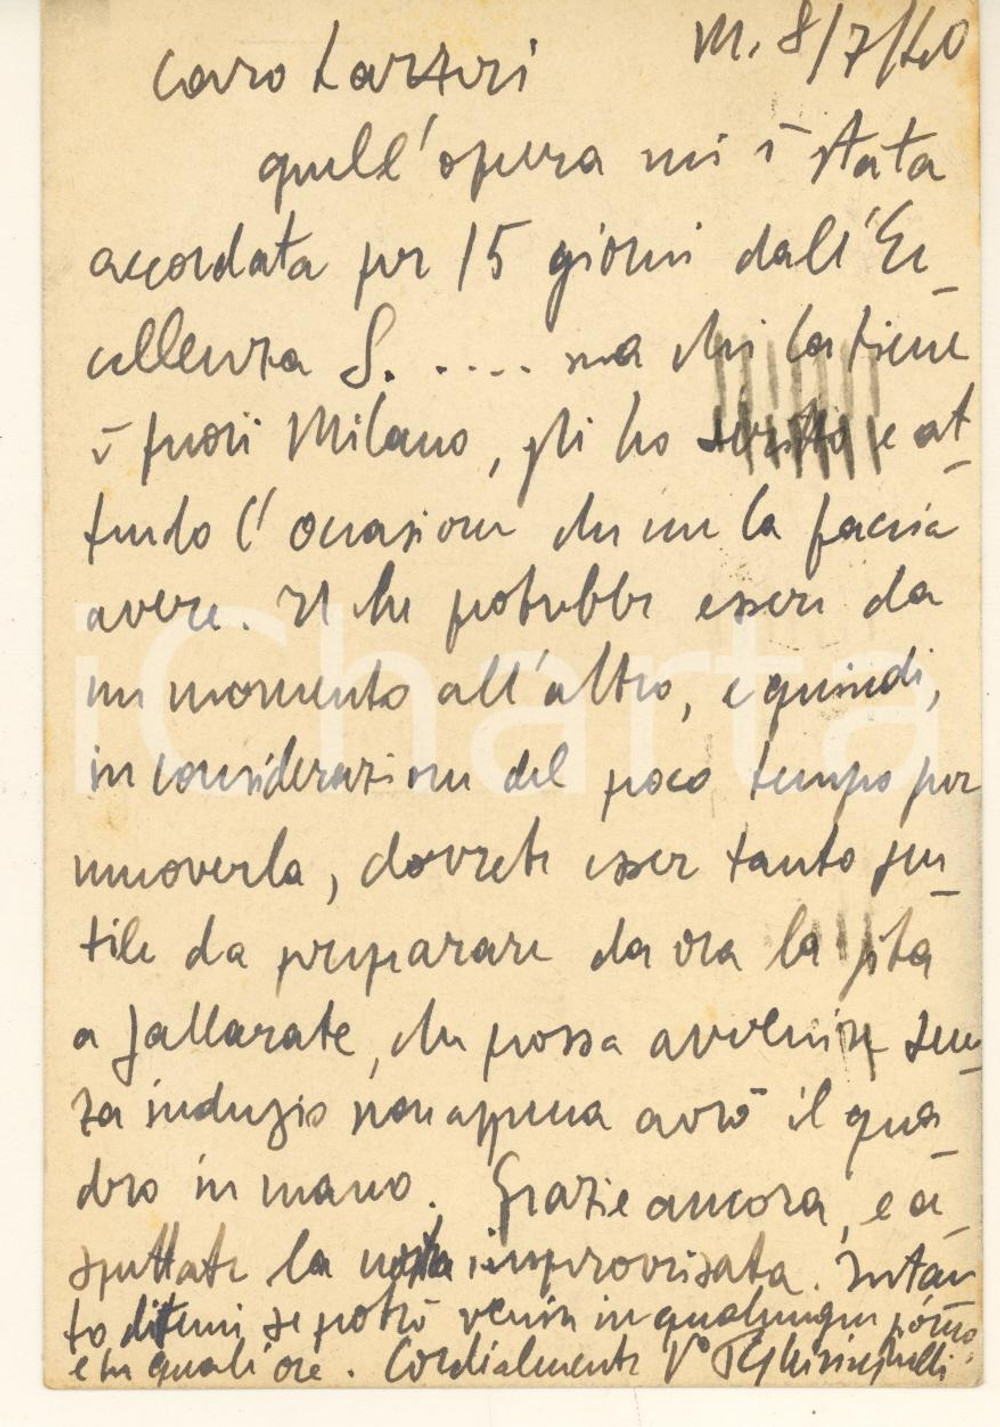 M. 8/7/40
Caro Lazzeri
quell'opera mi è stata
accordata per 15 giorni dall'Ec-
cellenza S. .... ma chi la tiene
è fuori Milano, gli ho scritto e at-
tendo l'occasione che me la faccia
avere. Il che potrebbe essere da
un momento all'altro, e quindi,
in considerazione del poco tempo per
muoverla, dovrete esser tanto gen-
tile da preparare da ora la gita
a Gallarate, che possa avvenire sen-
za indugio non appena avrò il qua-
dro in mano. Grazie ancora, e a-
spettate la nostra improvvisata. Intan
to ditemi se potrò venire in qualunque giorno
e in quali ore. Cordialmente Vº
iCharta